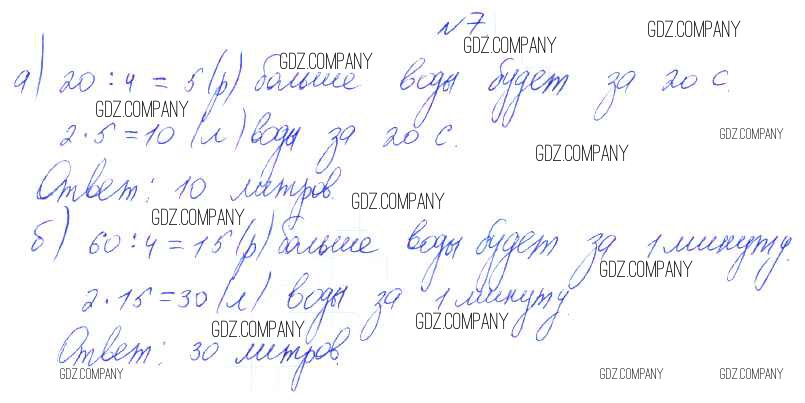 №7
а) 20 : 4 = 5 (р) больше воды будет за 20 с.
2 · 5 = 10 (л) воды за 20 с.
Ответ: 10 литров.
б) 60 : 4 = 15 (р) больше воды будет за 1 минуту.
2 · 15 = 30 (л) воды за 1 минуту.
Ответ: 30 литров.
GDZ.COMPANY
GDZ.COMPANY
GDZ.COMPANY
GDZ.COMPANY
GDZ.COMPANY
GDZ.COMPANY
GDZ.COMPANY
GDZ.COMPANY
GDZ.COMPANY
GDZ.COMPANY
GDZ.COMPANY
GDZ.COMPANY
GDZ.COMPANY
GDZ.COMPANY